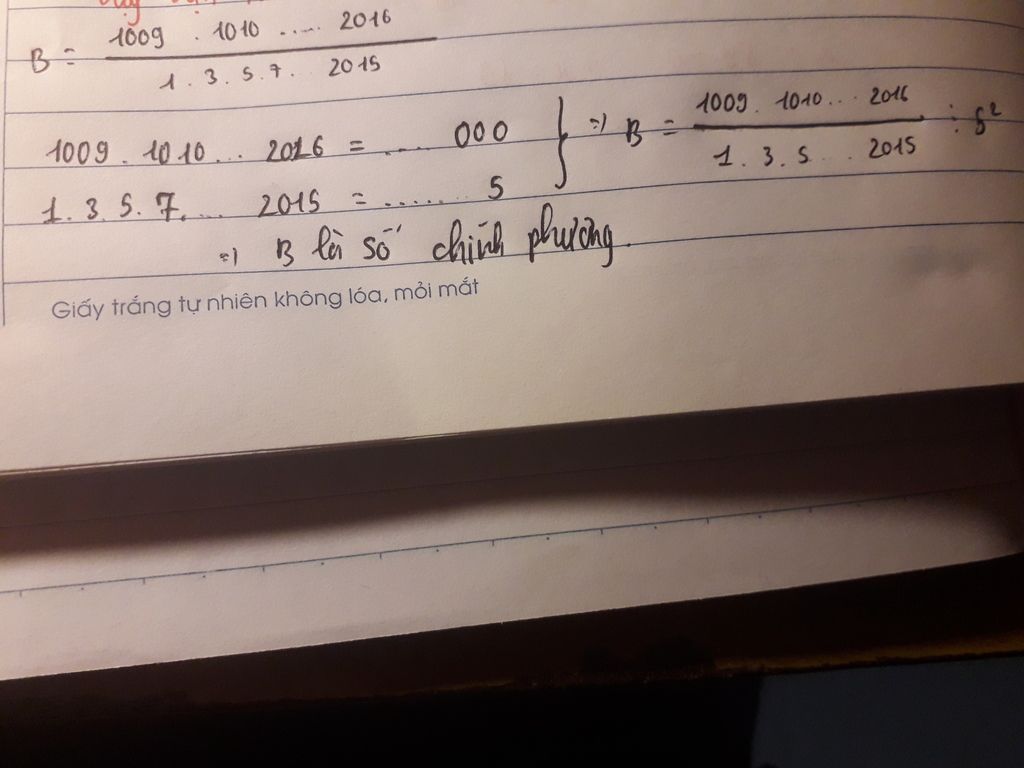 B = 1009 . 1010 ..... 2016 / 1 . 3 . 5 . 7 . .. 2015
1009 . 1010 ... 2016 = .... 000 } => B = 1009 . 1010 ... 2016 / 1 . 3 . 5 ... 2015 ⋮ 5²
1. 3. 5. 7. ... 2015 = ....... 5
=> B là số chính phương.
Giấy trắng tự nhiên không lóa, mỏi mắt